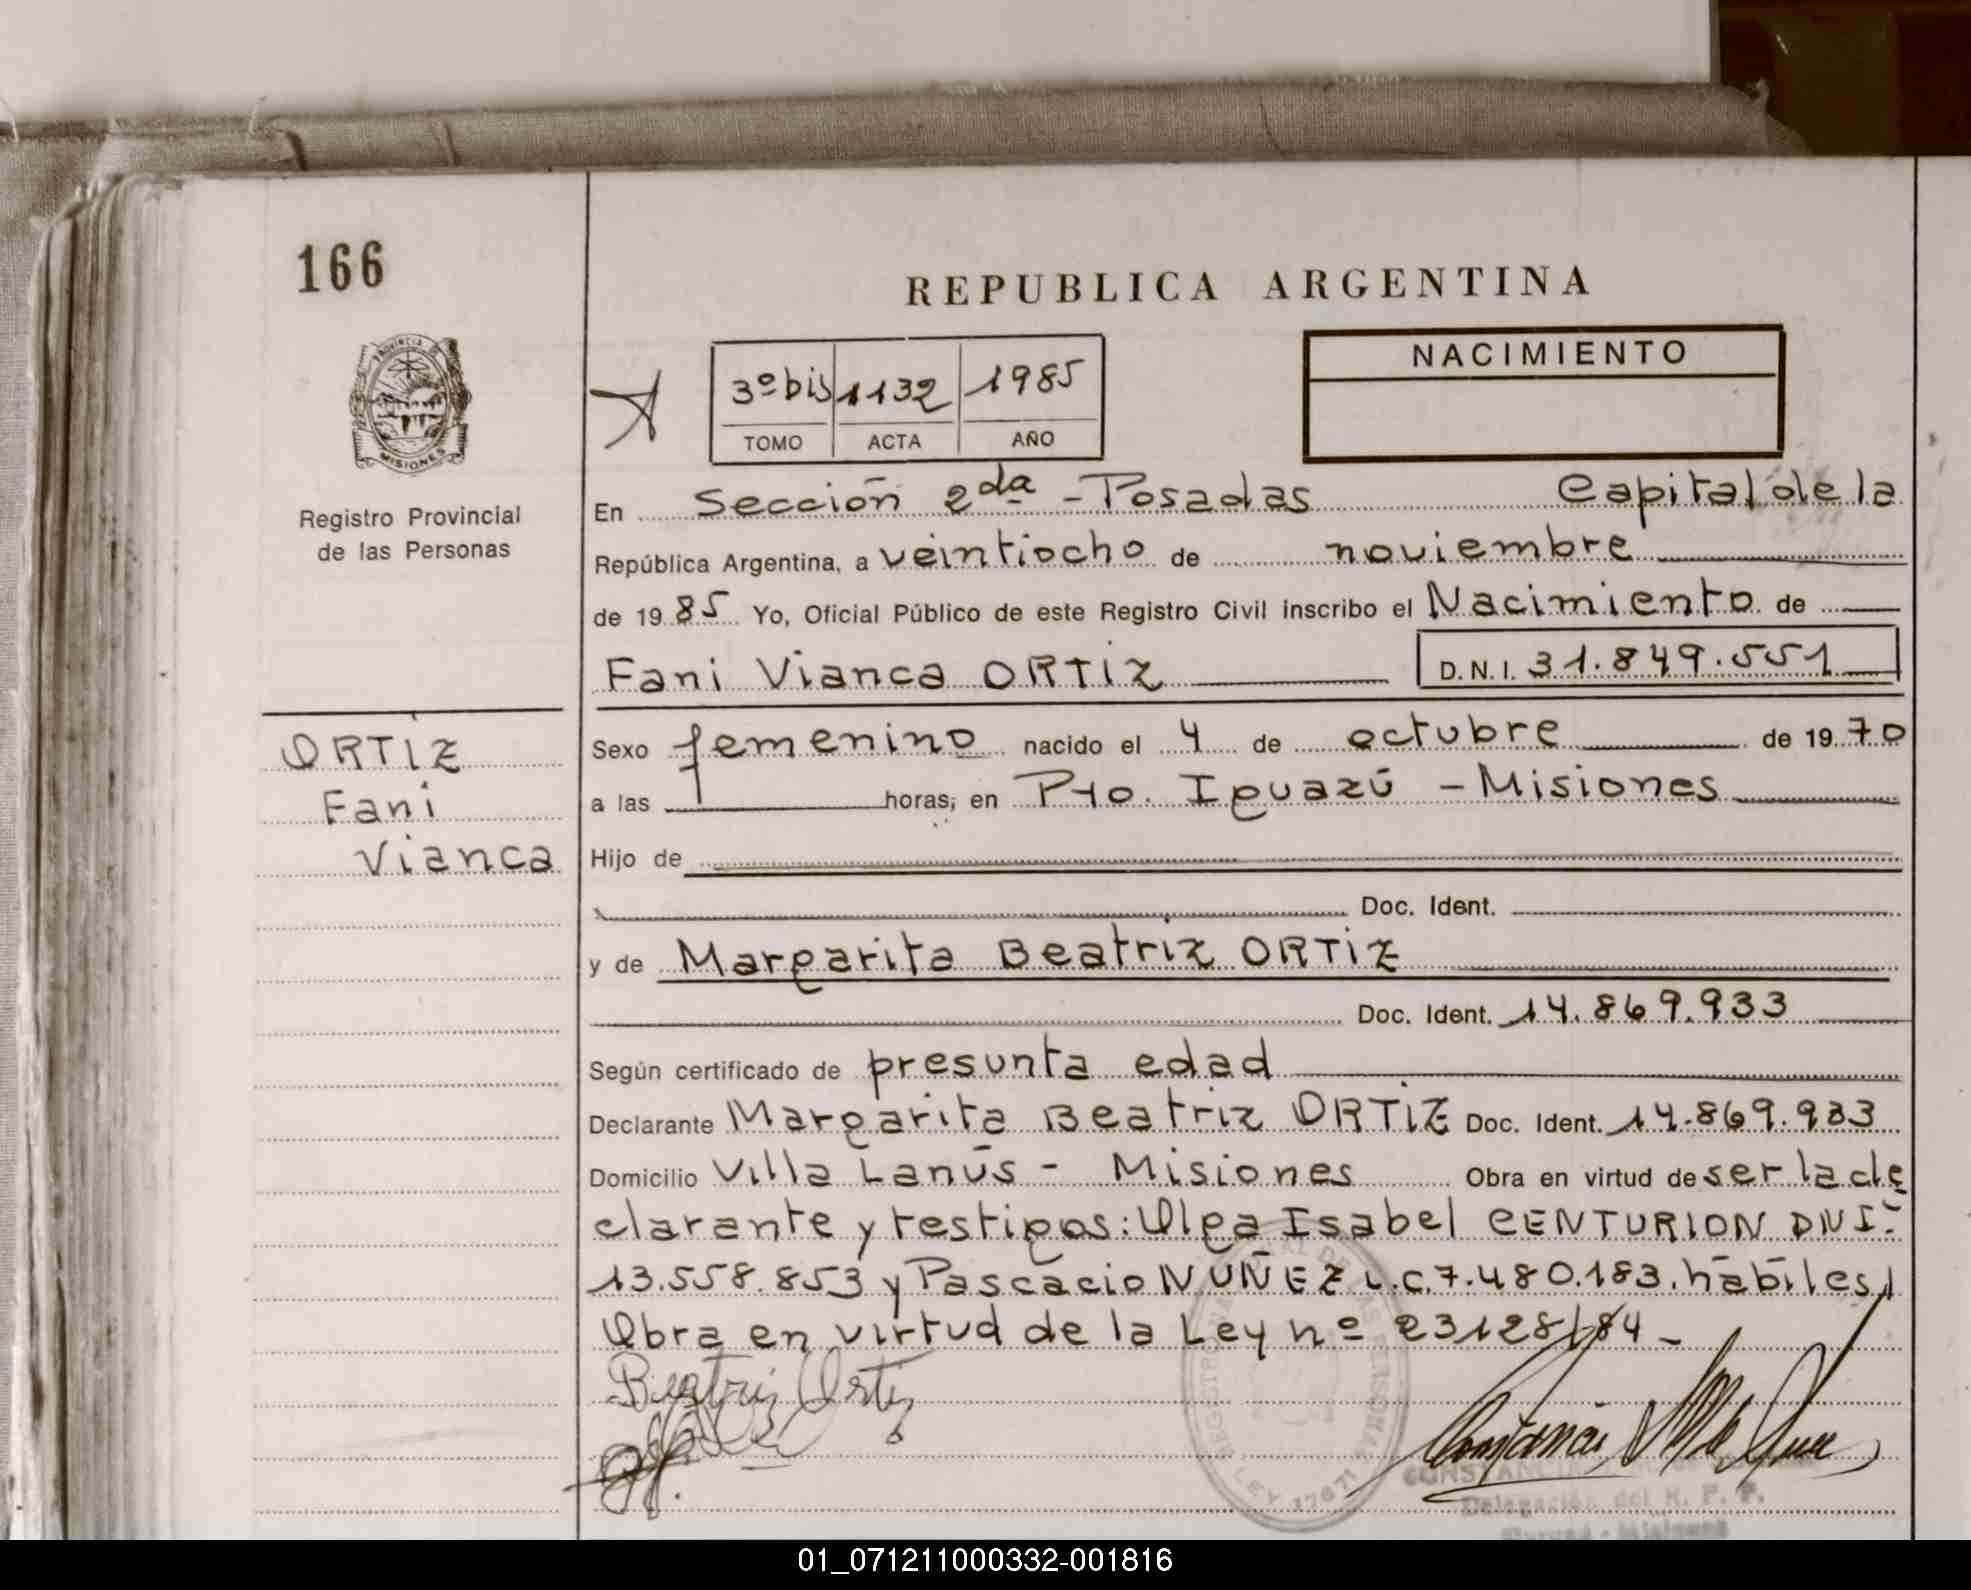 166
REPUBLICA ARGENTINA
PROVINCIA DE
MISIONES
Registro Provincial
de las Personas
3º bis 1132 1985
TOMO ACTA AÑO
NACIMIENTO
En Sección 2da - Posadas Capital de la
República Argentina, a veintiocho de noviembre
de 1985 Yo, Oficial Público de este Registro Civil inscribo el Nacimiento de
Fani Vianca ORTIZ D.N.I. 31.849.551
ORTIZ
Fani
Vianca
Sexo femenino nacido el 4 de octubre de 1970
a las horas, en Pto. Iguazú - Misiones
Hijo de
Doc. Ident.
y de Margarita Beatriz ORTIZ
Doc. Ident. 14.869.933
Según certificado de presunta edad
Declarante Margarita Beatriz ORTIZ Doc. Ident. 14.869.933
Domicilio Villa Lanús - Misiones Obra en virtud de ser la de
clarante y testigos: Olga Isabel CENTURION DNI:
13.558.853 y Pascacio NUÑEZ L.C. 7.480.183. hábiles
Obra en virtud de la Ley nº 23128/84 -
Beatriz Ortiz
LEY 17671
Delegación del R. P. P.
01_071211000332-001816